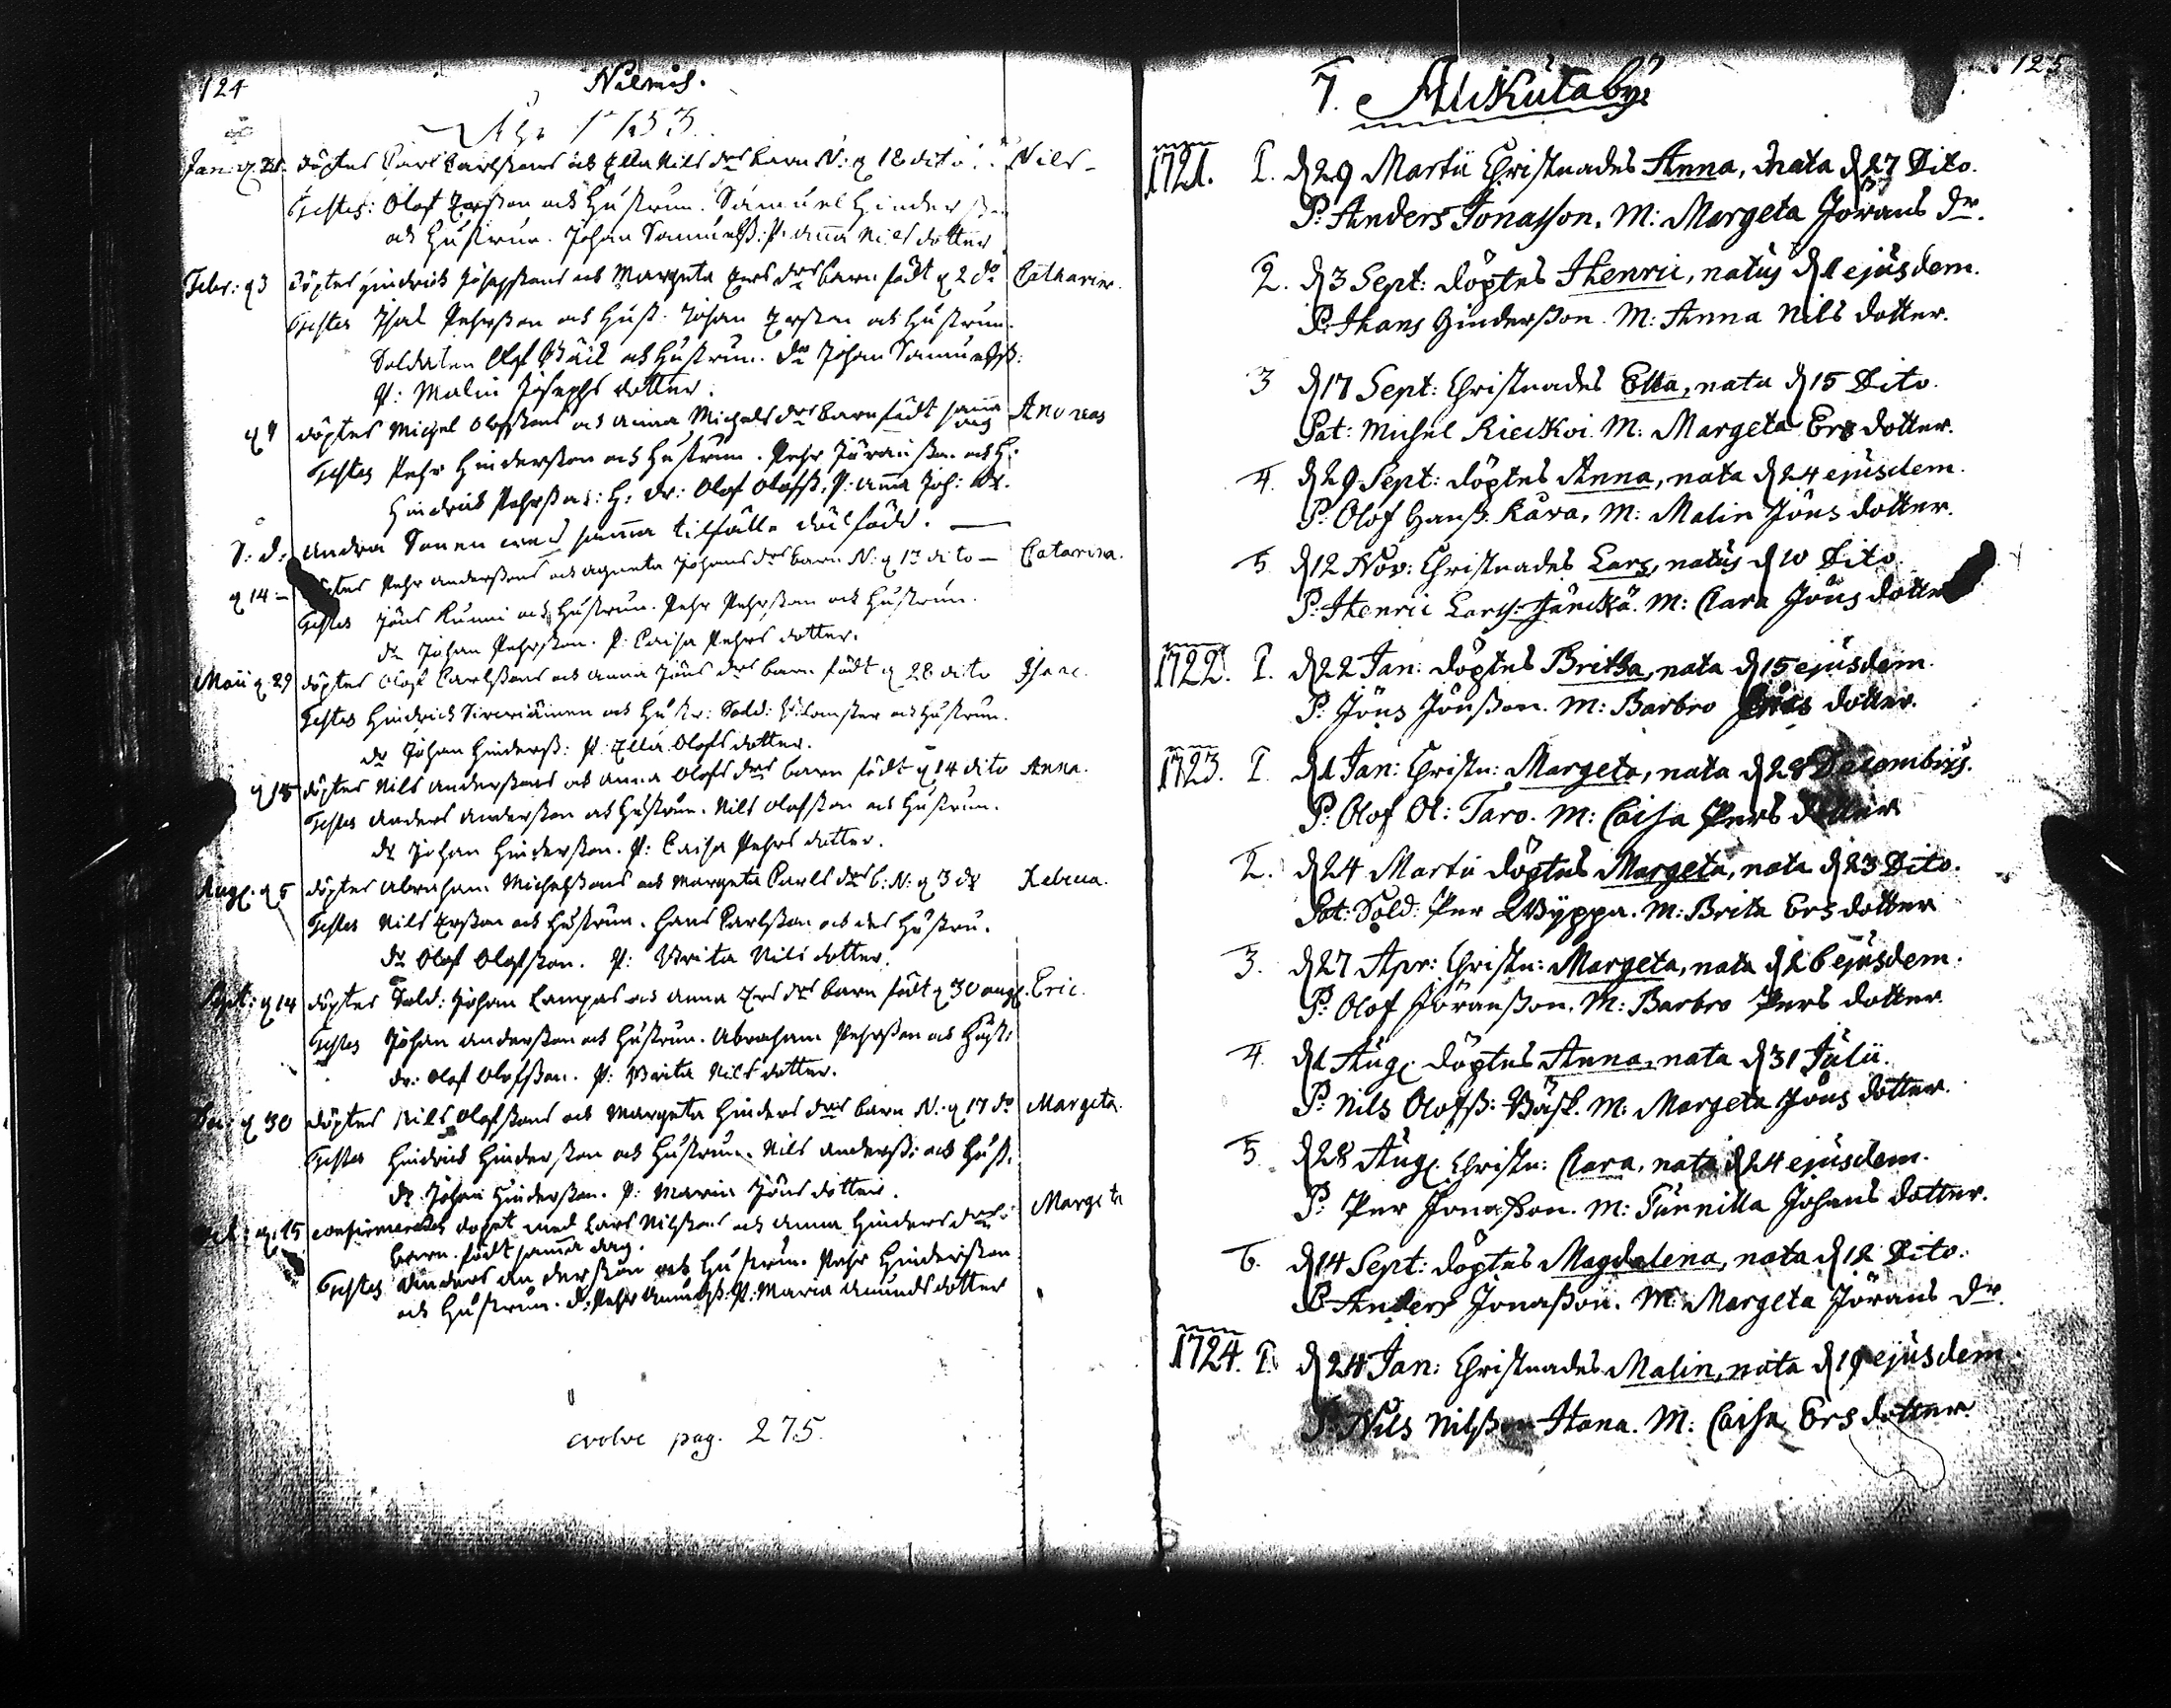 124
Nilmis.
Åhr 1753.
Jan: d. döptes Carl Carlssons och Ella Nils drs barn N: d 18 dito Nils
Testes: Olof Ersson och Hustrun. Samuel Hinders
och Hustrun. Johan Samuelss: P: Anna Nils dotter
Febr: d 3 döptes Hindrich Josepssons och Margeta Ers drs barn födt d 2 do Catharina.
Testes Isac Pehrsson och Hust: Johan Ersson och Hustrun.
Soldaten Olof och Hustrun. dr Johan Samuelss:
P: Malin Josephs dotter.
döptes Michel Olofssons och Anna Michels drs barn födt samma dag Andreas
Testes Pehr Hindersson och Hustrun. Pehr Jöransson och H:
Hindrich Pehrss och: H: dr: Olof Olofss. P: Anna Joh: dr.
S: d: Andra Sonen wed samma tilfälle död född.
d 14 döptes Pehr Anderssons och Agneta Johans drs barn N: d dito Catarina.
Testes Jöns Kunni och Hustrun. Pehr Pehrsson och Hustrun.
dr Johan Pehrsson. P: Caisa Pehrs dotter.
Maii d. 29 döptes Olof Carlssons och Anna Jöns drs barn födt d 28 dito Isac.
Testes Hindrich och Hustr: Sold: och Hustrun.
dr Johan Hinderss: P: Ella Olofs dotter.
d 15 döptes Nils Anderssons och Anna Olofs drs barn födt d 14 dito Anna.
Testes Anders Andersson och Hustrun. Nils Olofsson och Hustrun.
dr Johan Hindersson. P: Caisa Pehrs dotter.
Aug. d 5 döptes Abraham Michelssons och Margeta Carls drs b: N: d 3 dr Rebecca.
Testes Nils Ersson och Hustrun. Hans Carlsson och des Hustru.
dr Olof Olofsson. P: Brita Nils dotter.
Sept: d 14 döptes Sold: Johan Lampas och Anna Ers drs barn födt d 30 aug. Eric.
Testes Johan Andersson och Hustrun. Abraham Pehrsson och Hust:
dr: Olof Olofsson. P: Brita Nils dotter.
d 30 döptes Nils Olofssons och Margeta Hinders drs barn N: d 17 do Margeta.
Testes Hindrich Hindersson och Hustrun. Nils Anderss: och Hust:
dr Johan Hindersson. P: Maria Jöns dotter.
d. 15 confirmerades dopet med Lars Nilssons och Anna Hinders drs Margeta
barn. födt samma dag.
Testes Anders Andersson och Hustrun. Pehr Hindersson
och Hustrun. d: Pehr P: Maria Amunds dotter
evolve pag. 275.
125
7. Alikutaby.
1721. 1. d 29 Martii Christnades Anna, nata d 27 Dito.
P: Anders Jonasson. M: Margeta Jörans dr.
2. d 3 Sept: döptes Henric, natus d 1 ejusdem.
P: Hans Hindersson. M: Anna Nils dotter.
3 d 17 Sept: Christnades Ella, nata d 15 Dito.
Pat: Michel Rieckoi M: Margeta Ers dotter.
4. d 29 Sept: döptes Anna, nata d 24 ejusdem.
P: Olof Hanss. Kära, M: Malin Jöns dotter.
5 d 12 Nov: Christnades Lars, natus d 10 Dito
P: Henric Larss: M: Clara Jöns dotter
1722. 1. d 22 Jan: döptes Britha, nata d 15 ejusdem.
P: Jöns Jönsson. M: Barbro dotter.
1723. 1. d 1 Jan: Christn: Margeta, nata d 28 Decembris.
P: Olof Ol: Taro. M: Caisa Pers dotter
2. d 24 Martii döptes Margeta, nata d 23 Dito.
Pat: Sold: Per Wyppa. M: Brita Ers dotter
3. d 27 Apr: Christn: Margeta, nata d 26 ejusdem.
P: Olof Jöransson. M: Barbro Pers dotter
4. d 1 Aug. döptes Anna, nata d 31 Julii.
P: Nils Olofss: Bäsk. M: Margeta Jöns dotter.
5. d 28 Aug. Christn: Clara, nata d 24 ejusdem.
P: Per Jonasson. M: Gunnilla Johans dotter.
6. d 14 Sept: döptes Magdalena, nata d 12 Dito.
P: Anders Jonasson. M: Margeta Jörans dr.
1724. 1. d 24 Jan: Christnades Malin, nata d 19 ejusdem.
P: Nils Nilsson Hana. M: Caisa Ers dotter.